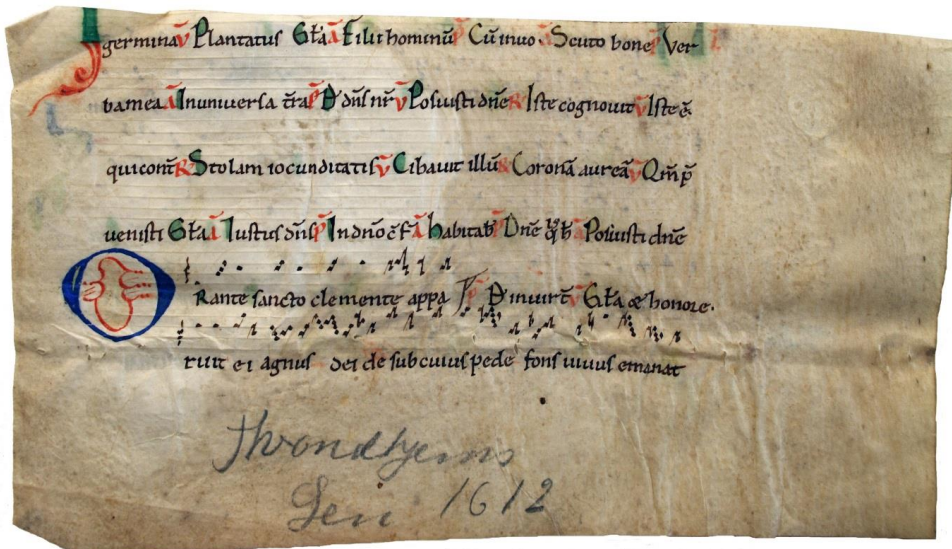 germina v̄ Plantatus Gła ā Filii hominū p̄ Cū inuo a Scuto bone p̄ Ver
ba mea ā In uniuersa t̄ra p̄ D̄ dn̄s nr̄ v̄ Posuisti dn̄e R Iste cognouit v̄ Iste ē
qui cont̄ R Stolam iocunditatis v̄ Cibauit illū R Coronā aureā v̄ Qm̄ p̄
uenisti Gła ā Iustus dn̄s p̄ In dn̄o ā habitab̄ p̄ Dn̄e a Posuisti dn̄e
Orante sancto clemente appa p̄ D̄ in uirt̄ v̄ Gła & honore.
ruit ei agnus dei de sub cuius pede fons uiuus emanat
Throndhjems
Len 1612